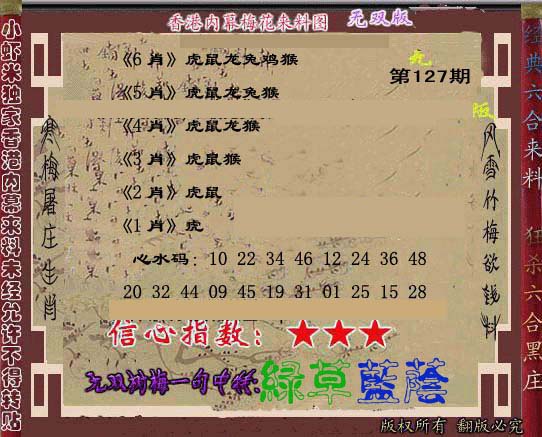 香港内幕梅花来料图 无双版
九
第127期
《6 肖》虎鼠龙兔鸡猴
《5 肖》虎鼠龙兔猴
《4 肖》虎鼠龙猴
《3 肖》虎鼠猴
《2 肖》虎鼠
《1 肖》虎
心水码：10 22 34 46 12 24 36 48
20 32 44 09 45 19 31 01 25 15 28
信心指数：★★★
一句中特:綠草藍蔭
版权所有 翻版必究
小虾米独家香港内幕来料未经允许不得转贴
寒梅屠庄生肖
风雪竹梅欲钱料
经典六合来料
狂杀六合黑庄